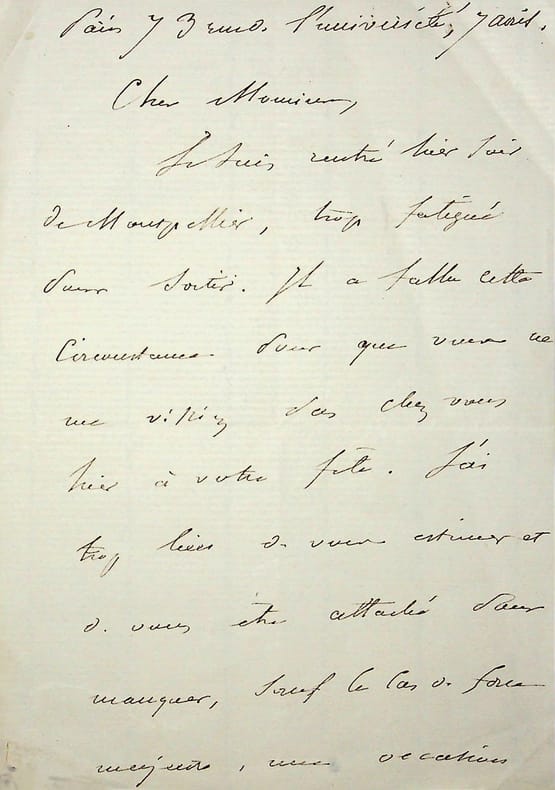 Paris 73 rue de l'université, 7 avril.
Cher Monsieur,
Je suis rentré hier soir
de Montpellier, trop fatigué
pour sortir. Il a fallu cette
circonstance pour que vous ne
me vissiez pas chez vous
hier à votre fête. J'ai
trop lieu de vous estimer et
de vous être attaché pour
manquer, sauf le cas de force
majeure, une occasion